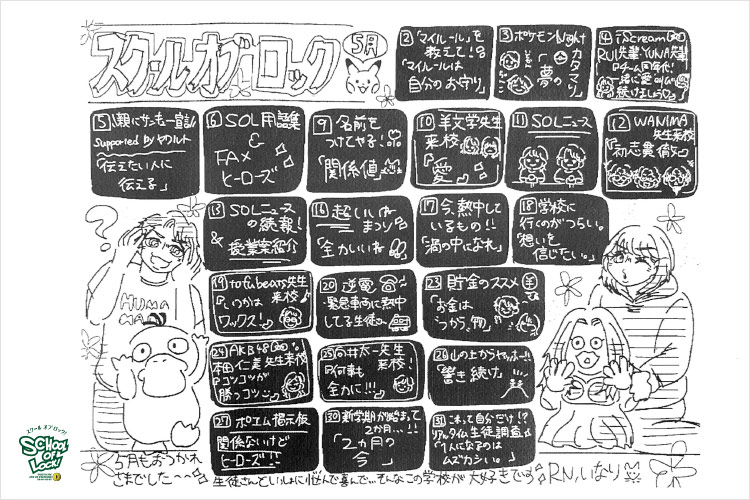 スクールオブロック
5月
2 「マイルール」を
教えて!
「マイルールは
自分のお守り」
3 ポケモンNight
「夢の
カタマリ」
4 iScream
RUI先輩・YUNA先輩
5 親にサンキュー宣言
supported by ヤクルト
「伝えたい人に
伝える」
6 SOL用語集
&
FAX
ヒーローズ
9 名前を
つけてやる!
「関係値」
10 羊文学先生
来校
「愛」
11 SOLニュース
12 WANIMA
先生来校
「初志貫徹」
13 SOLニュース
の続報!
& 授業案紹介
16 超いいね
まつり
「全力いいね」
17 今、熱中して
いるもの!!
「渦の中になれ」
18 学校に
行くのがつらい。
「想いを
信じたい。」
19 tofubeats先生
来校
「いつかは
ワックス!」
20 逆電
緊急事態に熱中
してる生徒
23 貯金のススメ
「お金は
24 AKB48
本田仁美先生来校
「コツコツが
勝つコツ」
25 向井太一先生
来校!
「何事も
全力に!!!」
26 山の上からヤッホー!!
「書き続け」
27 ポエム掲示板
関係ないけど
ヒーローズ!!
30 新学期が始まって
2か月...!!
「2ヵ月の
今」
31 これって自分だけ!?
リアルタイム生徒調査
「1人になるのは
ムズカシい。」
HUMA
スクール オブ ロック!
SCHOOL
OF
LOCK!
5月もおつかれ
さまでした〜
生徒さんといっしょに悩んで喜んで...そんなこの学校が大好きです RN.いなり